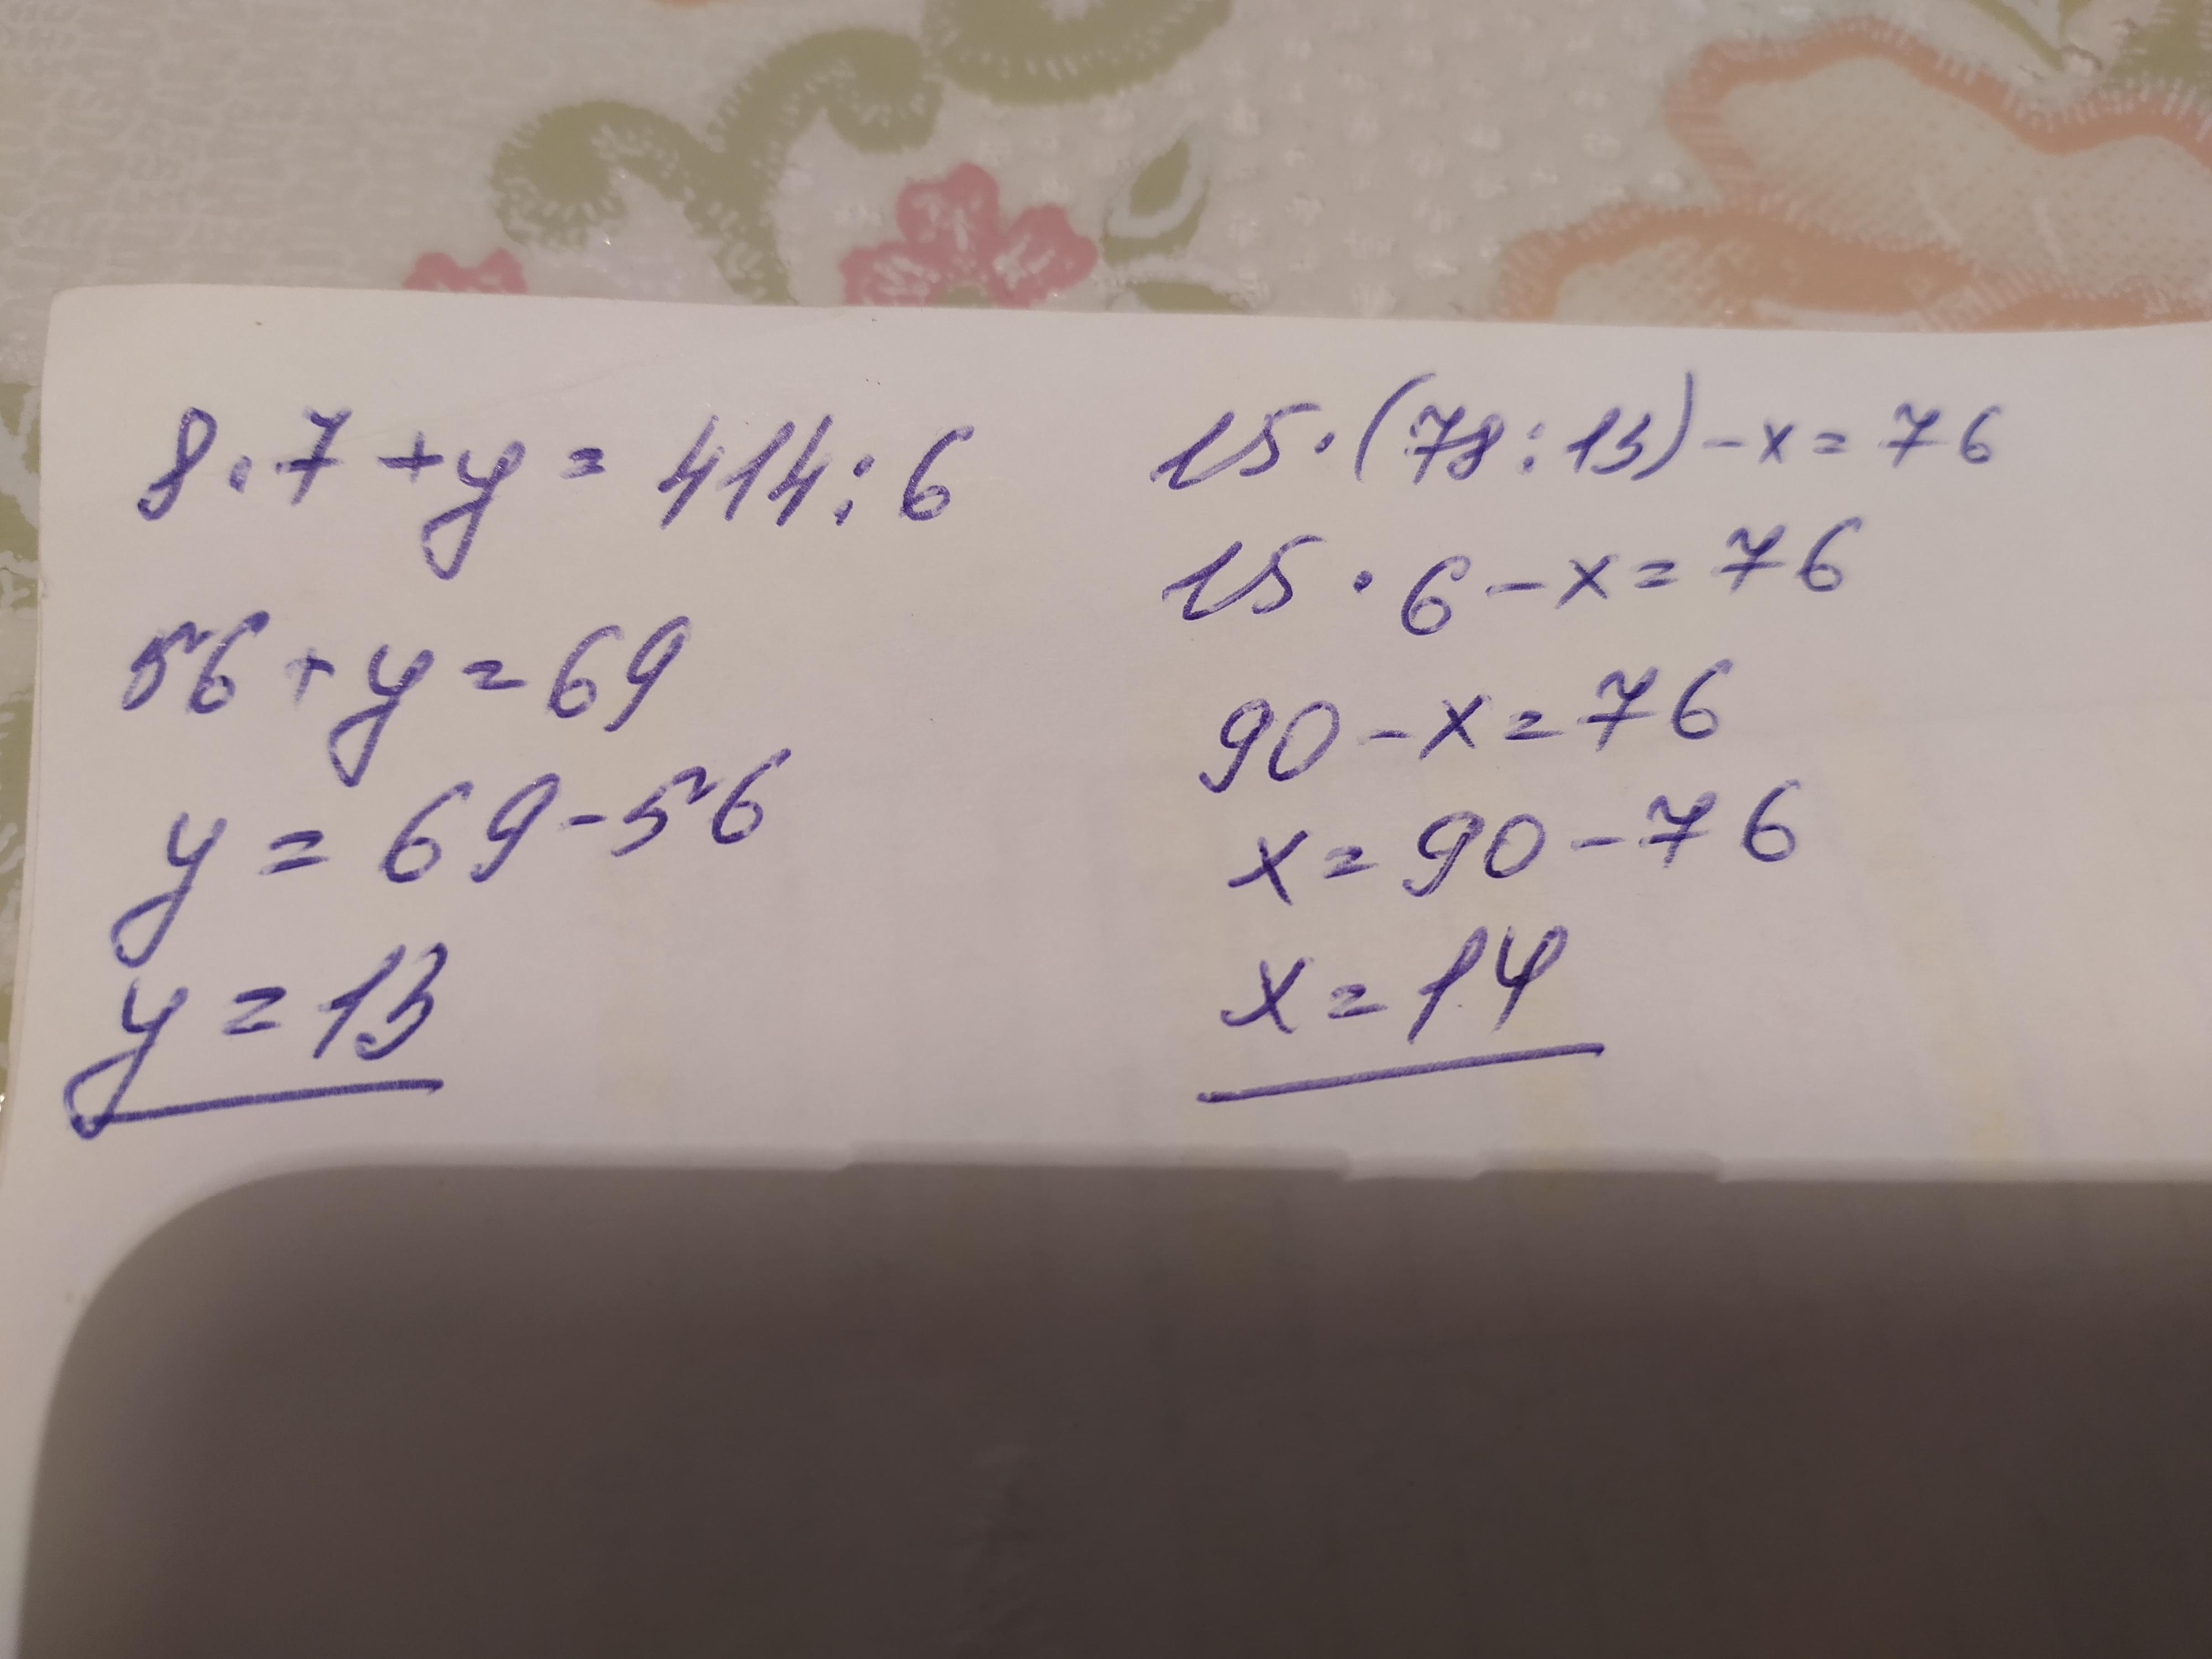 8·7+y=414:6
56+y=69
y=69-56
y=13
15·(78:13)-x=76
15·6-x=76
90-x=76
x=90-76
x=14